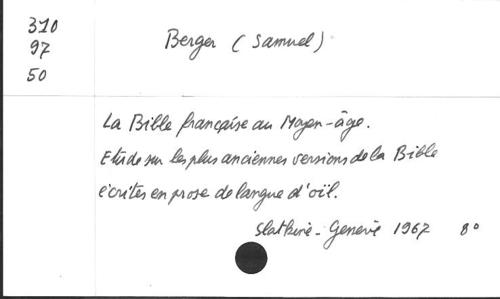 310
97
50
Berger (Samuel)
La Bible française au Moyen-âge.
Etude sur les plus anciennes versions de la Bible
écrites en prose de langue d'oïl.
Slatkine - Genève 1967 8°